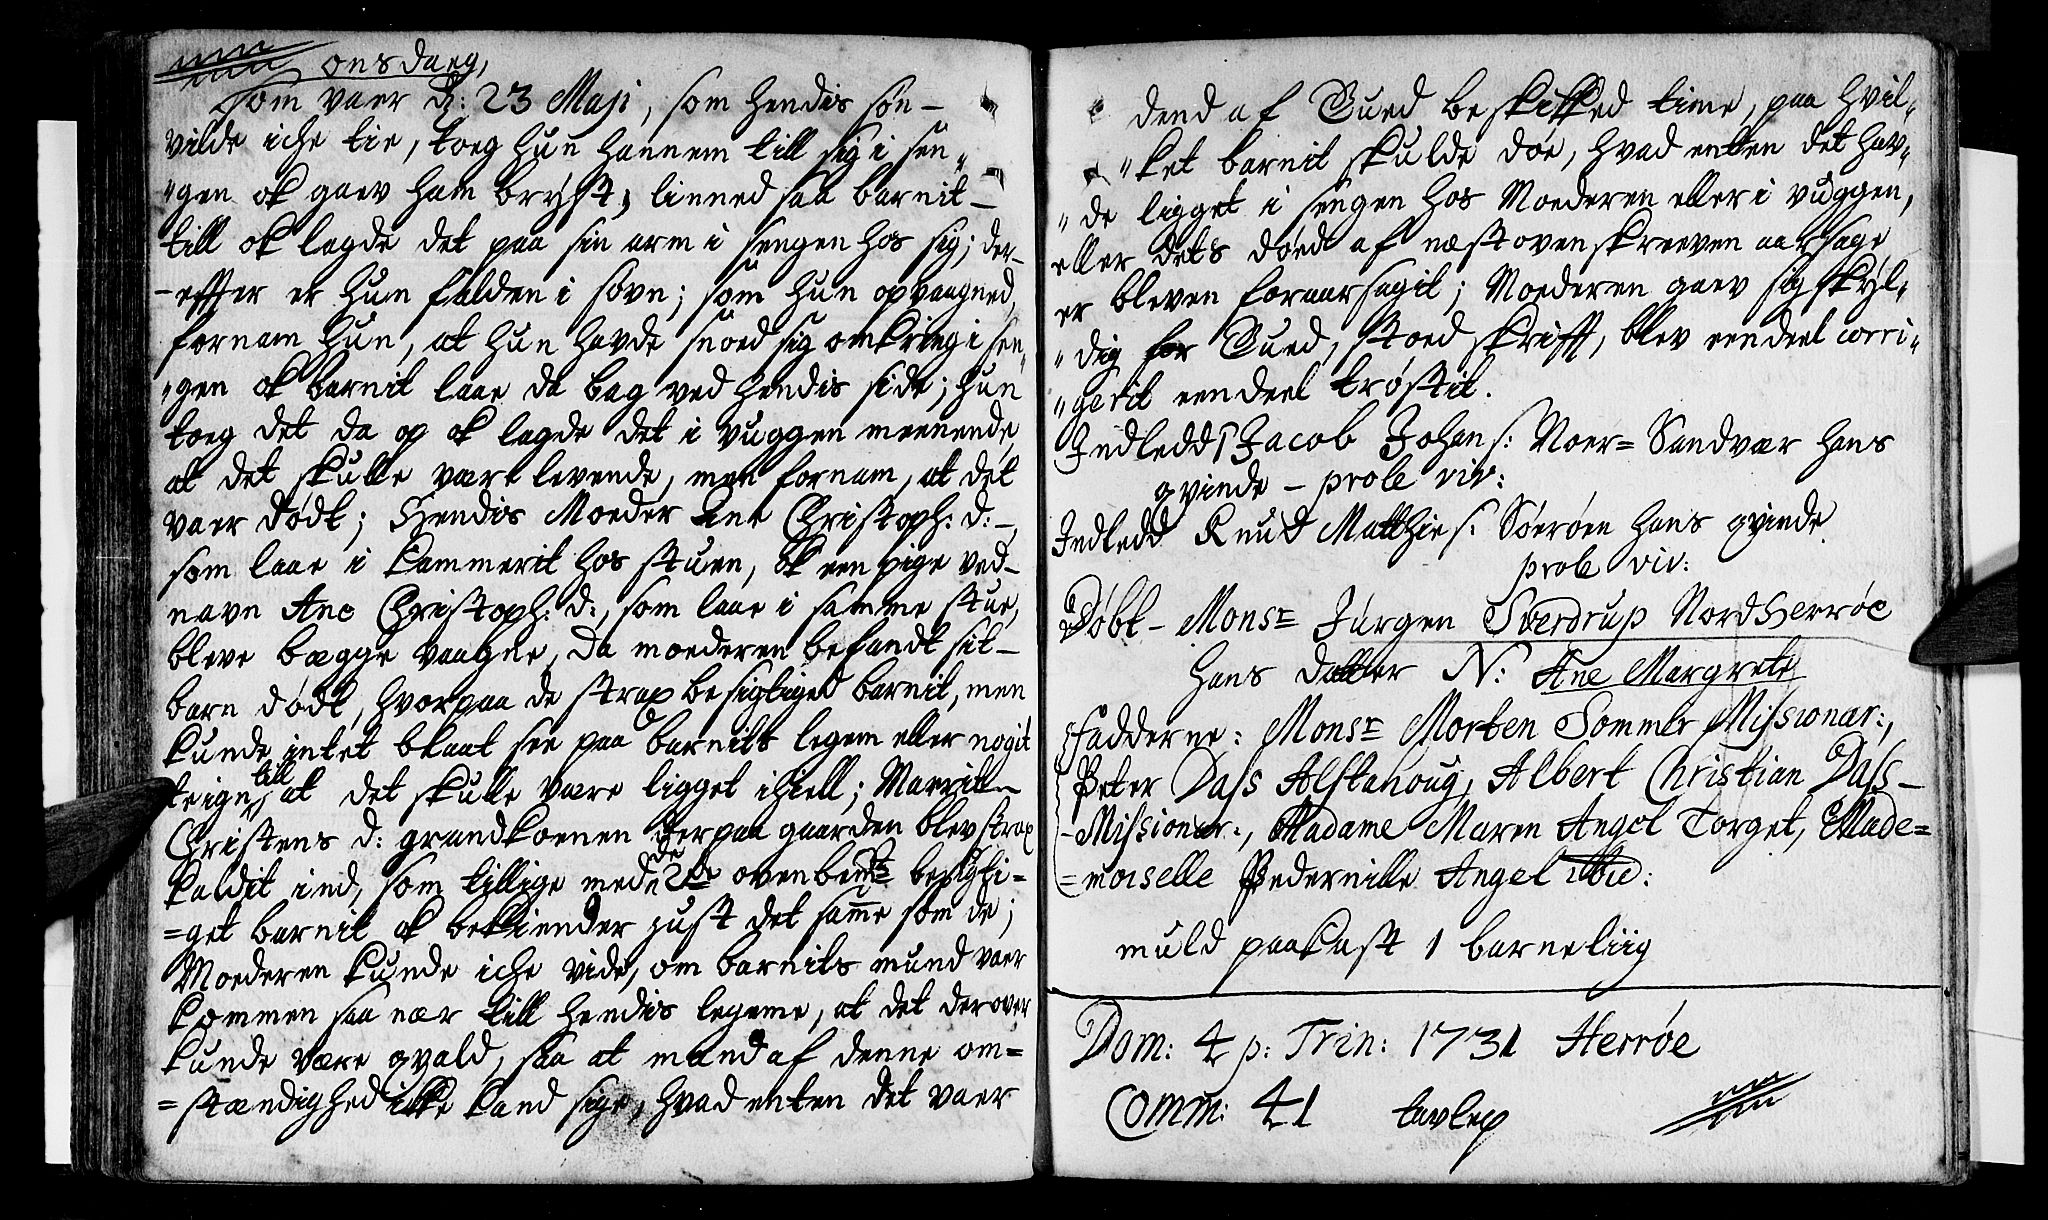 onsdaeg,
som vaer d: 23 Maji, som hendis søn-
vilde iche tie, toeg hun hannem till sig i sen„
„gen ok gaev ham bryst, linned saa barnit-
till ok lagde det paa sin arm i sengen hos sig; der-
-effter er hun falden i søvn; som hun opvaagned,
fornam hun, at hun havde snoed sig omkring i sen„
„gen ok barnit laae da bag ved hendis side; hun
toeg det da op ok lagde det i vuggen meenende
at det skulle være levende, men fornam, at det
vaer dødt; Hendis Moeder Ane Christoph: d:-
som laae i kammerit hos stuen, ok een pige ved-
navn Ane Christoph: d:, som laae i samme stue,
bleve begge vaagne, da moederen befandt sit-
barn dødt, hvorpaa de strax besigtiged barnit, men
kunde intet blaat see paa barnits legem eller nogit
teigne till at det skulle være ligget ihiell; Marrit-
Christens d: grandkoenen der paa gaarden blev strax
kaldit ind, som tillige med de 2de ovenbemte besigti=
=get barnit ok bekiender just det samme som de;
Moederen kunde iche vide, om barnits mund vaer
kommen saa nær till hendis legeme, at det derover
kunde være qvald, saa at mand af denne om=
=stændighed ikke kand sige, hvad enten det vaer
dend af Gued beskikked time, paa hvil„
„ket barnit skulde døe, hvad enten det hav„
„de ligget i sengen hos Moederen eller i vuggen,
eller dets døedt af næst ovenskreeven aarsage
er bleven foraarsagit; Moederen gaev sig skyl„
„dig for Gued, stoed skrifft, blev een deel corri„
„gerit een deel trøstit.
Indledd Jacob Johans: Noer= Sandvær hans
qvinde - prole viv:
Indledd Knud Matthies: Søerøen hans qvinde
prole viv:
Døbt - Monsr Jürgen Sverdrup Nordherrøe
hans datter N: Ane Margrete
Fadderne: Monsr Morten Sommer Missionar:,
Peter Dass Alstahoug, Albert Christian Dass-
-Missionar:, Madame Maren Angel Torget, Made=
=moiselle Pedernille Angel ibid:
muld paakast 1 barneliig
Dom: 4 p: Trin: 1731 Herrøe
Comm: 41 tavlep